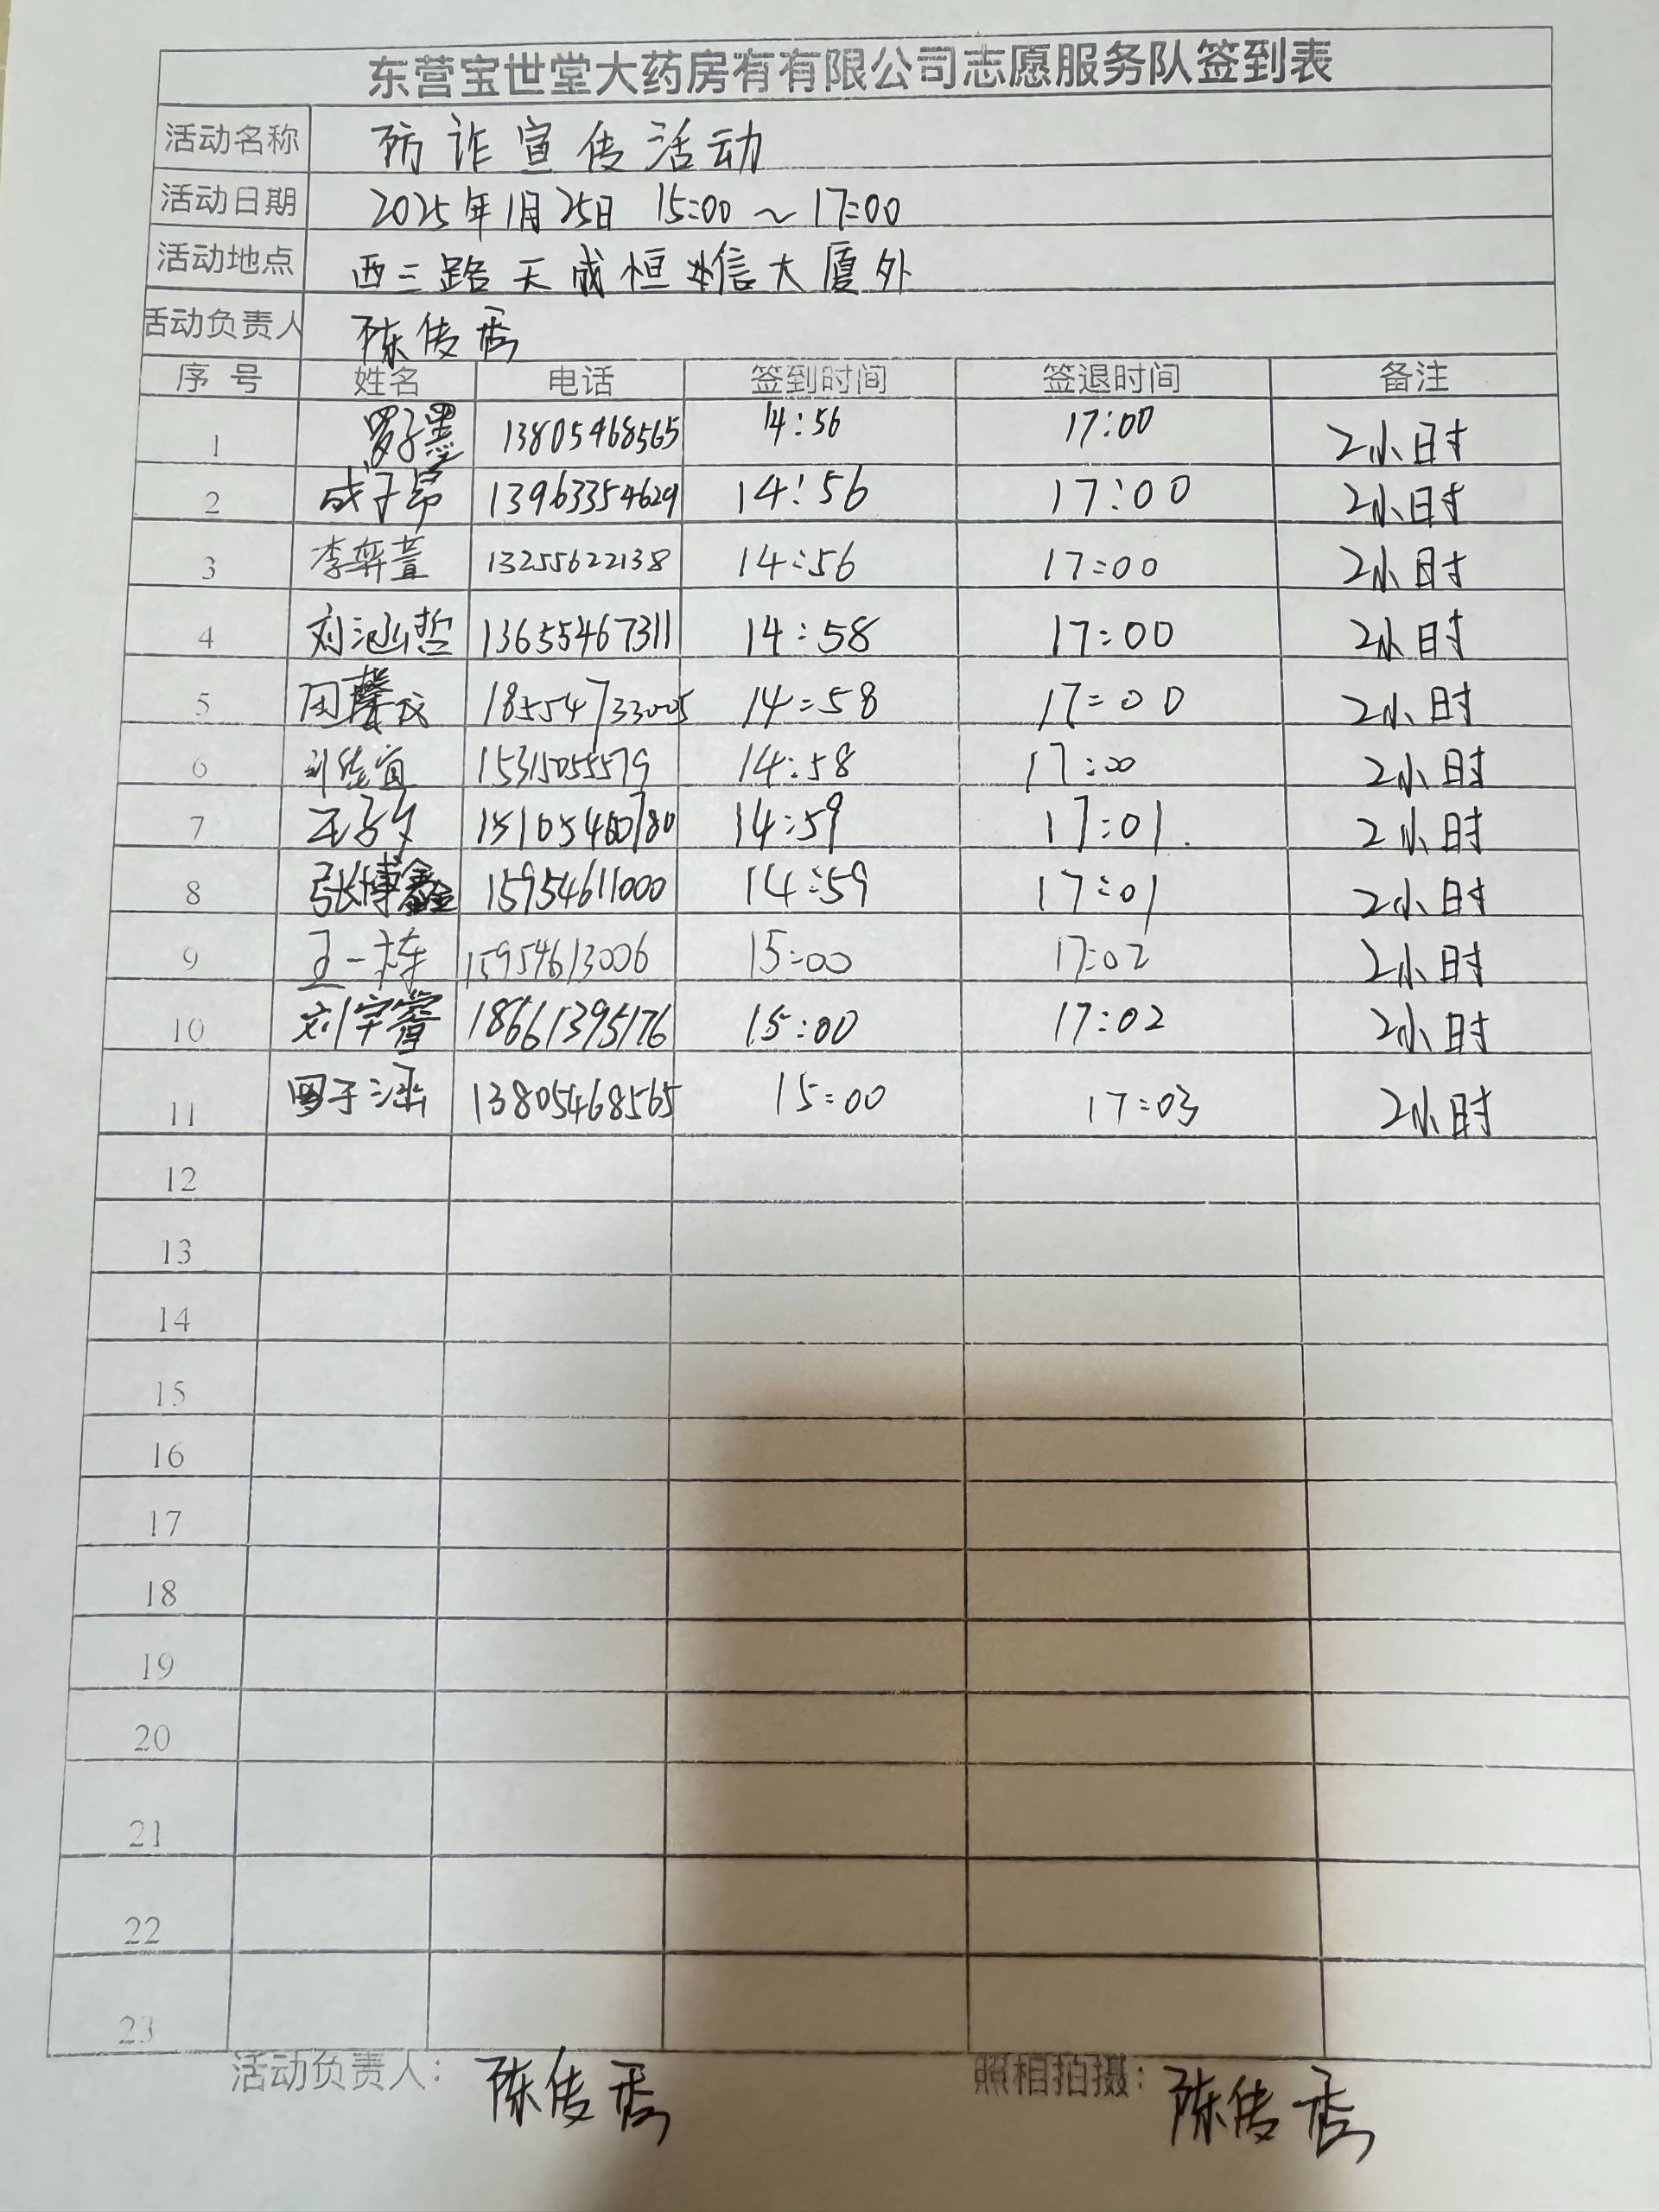 东营宝世堂大药房有有限公司志愿服务队签到表
活动名称 防诈宣传活动
活动日期 2025年1月25日 15:00～17:00
活动地点 西三路天成恒信大厦外
活动负责人 陈传秀
序号 姓名 电话 签到时间 签退时间 备注
1 罗子墨 13805468565 14:56 17:00 2小时
2 成子昂 13963354629 14:56 17:00 2小时
3 李弈萱 13255622138 14:56 17:00 2小时
4 刘涵哲 13655467311 14:58 17:00 2小时
5 18554733005 14:58 17:00 2小时
6 15315055579 14:58 17:00 2小时
7 14:59 17:01 2小时
8 张博鑫 15954611000 14:59 17:01 2小时
9 王一栋 15954613006 15:00 17:02 2小时
10 刘宇睿 18661395176 15:00 17:02 2小时
11 罗子涵 13805468565 15:00 17:03 2小时
12
13
14
15
16
17
18
19
20
21
22
23
活动负责人：陈传秀 照相拍摄：陈传秀